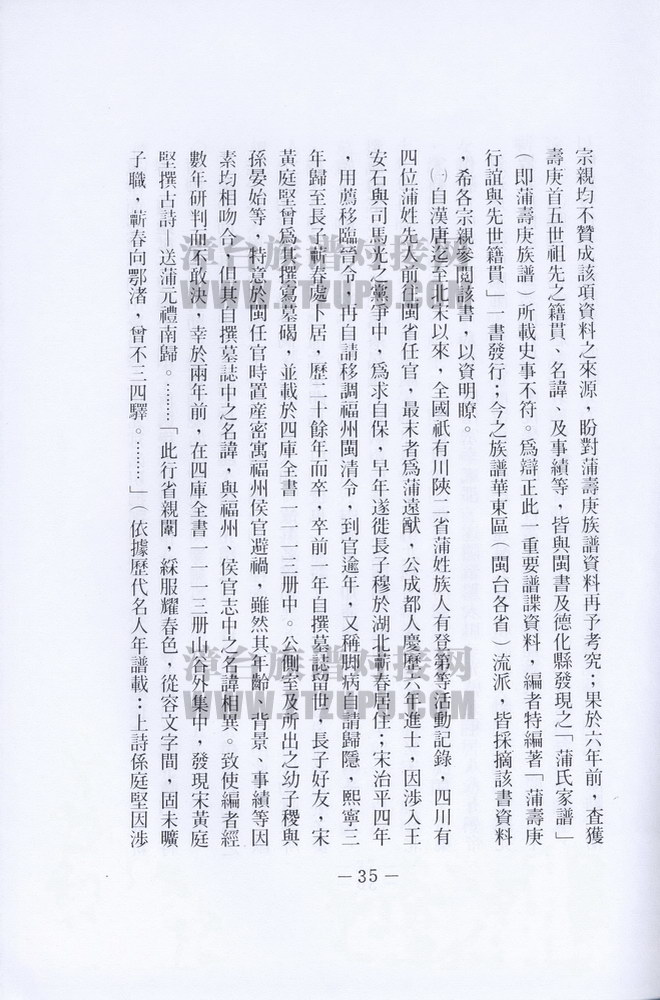 宗親均不贊成該項資料之來源，盼對蒲壽庚族譜資料再予考究；果於六年前，查獲
壽庚首五世祖先之籍貫、名諱、及事績等，皆與閩書及德化縣發現之「蒲氏家譜」
（即蒲壽庚族譜）所載史事不符。爲辯正此一重要譜諜資料，編者特編著「蒲壽庚
行誼與先世籍貫」一書發行；今之族譜華東區（閩台各省）流派，皆採摘該書資料
，希各宗親參閱該書，以資明瞭。
㈠自漢唐迄至北宋以來，全國祇有川陝二省蒲姓族人有登第等活動記錄，四川有
四位蒲姓先人前往閩省任官，最末者爲蒲遠猷，公成都人慶歷六年進士，因涉入王
安石與司馬光之黨爭中，爲求自保，早年遂徙長子穆於湖北蘄春居住；宋治平四年
，用薦移臨晉令；再自請移調福州閩清令，到官逾年，又稱脚病自請歸隱，熙寧三
年歸至長子蘄春處卜居，歷二十餘年而卒，卒前一年自撰墓誌留世，長子好友，宋
黃庭堅曾爲其撰寫墓碣，並載於四庫全書一一一三册中。公側室及所出之幼子稷與
孫晏始等，特意於閩任官時置産密寓福州侯官避禍，雖然其年齡、背景、事績等因
素均相吻合，但其自撰墓誌中之名諱，與福州、侯官志中之名諱相異。致使編者經
數年研判而不敢決，幸於兩年前，在四庫全書一一一三册山谷外集中，發現宋黃庭
堅撰古詩—送蒲元禮南歸。………「此行省親闈，綵服耀春色，從容文字間，固未曠
子職，蘄春向鄂渚，曾不三四驛。………」（依據歷代名人年譜載：上詩係庭堅因涉
—35—
漳台族譜对接网
WWW.ZTZUPU.COM
漳台族譜对接网
WWW.ZTZUPU.COM